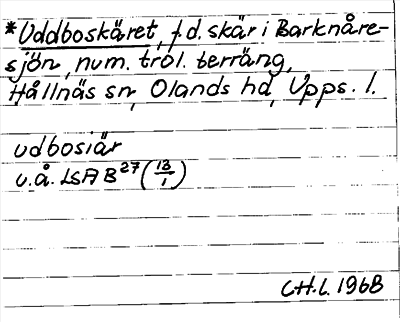 *Uddboskäret, f.d. skär i Barknåre-
sjön, num. trol. terräng,
Hållnäs sn, Olands hd, Upps. l.
udbosiär
u.å. LSA B²⁷ (13/1)
CH.L. 1968